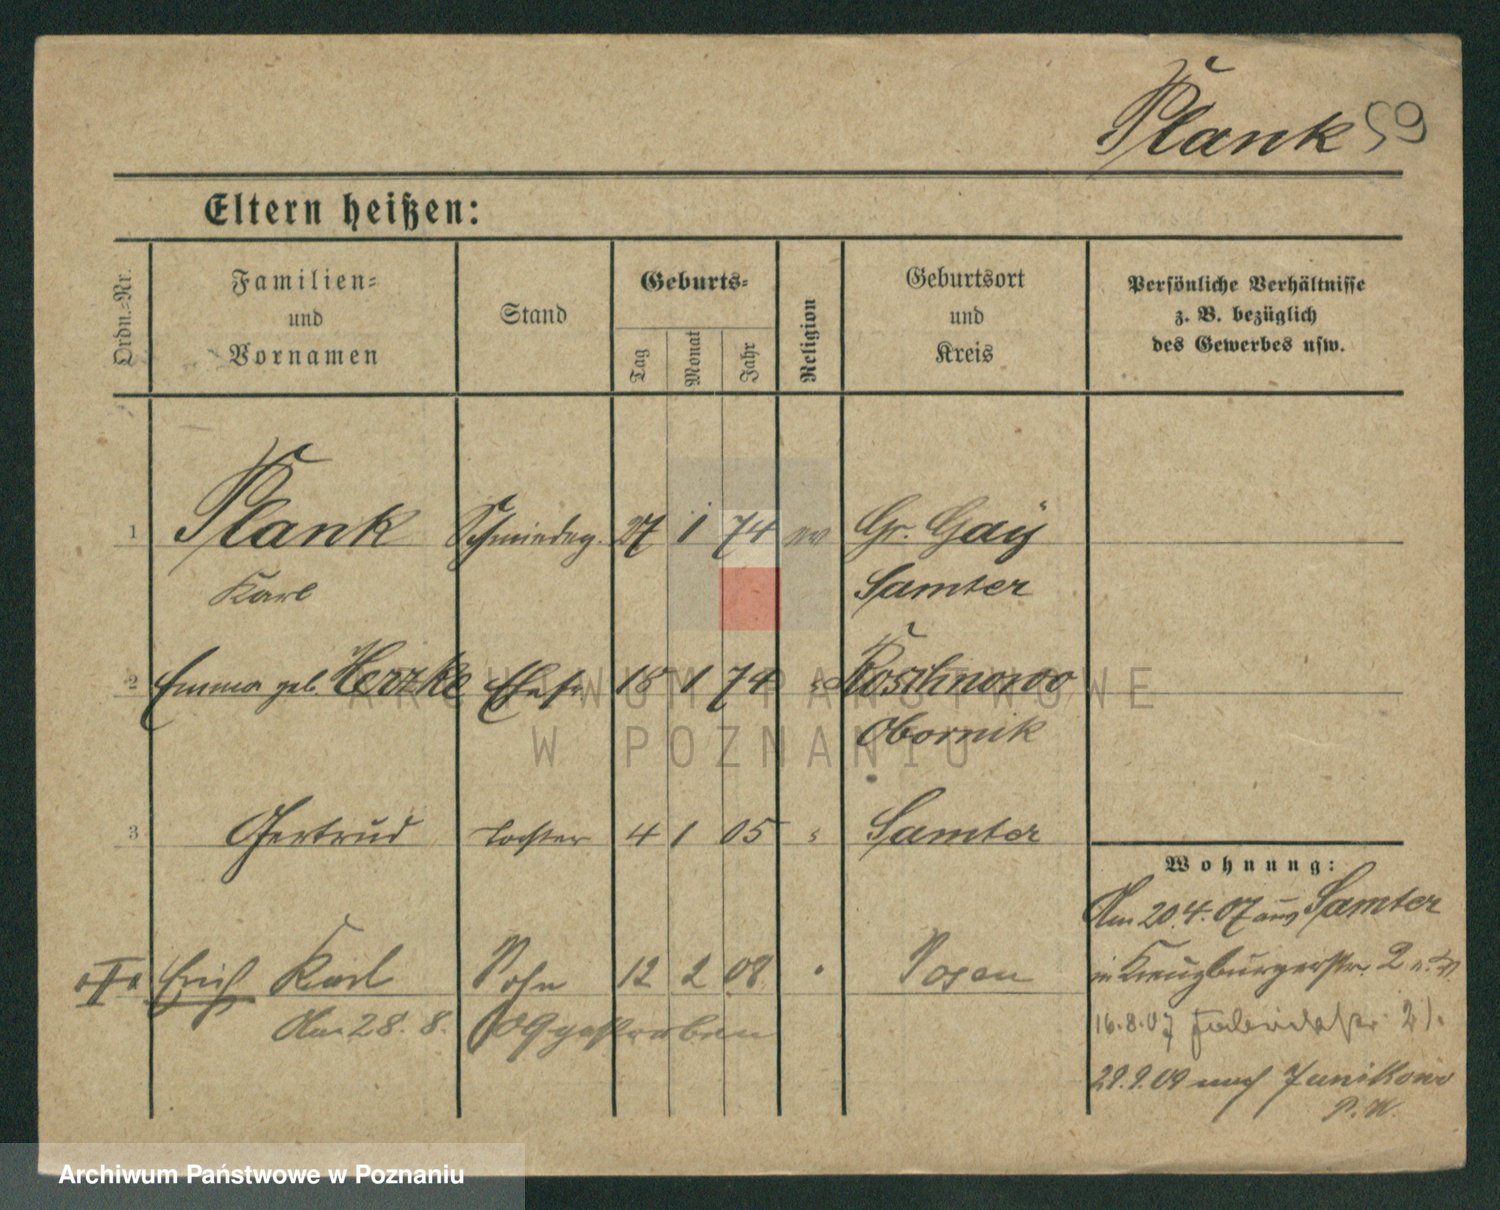 Plank 59
Eltern heißen:
Ordn.-Nr.
Familien-
und
Vornamen
Stand
Geburts-
Tag
Monat
Jahr
Religion
Geburtsort
und
Kreis
Persönliche Verhältnisse
z. B. bezüglich
des Gewerbes usw.
1 Plank Schmiedeg. 27 1 74 ev Gr. Gay
Karl Samter
2 Emma geb. Herzke Ehefr 18 1 74 " Roschnowo
Obornik
3 Gertrud Tochter 4 1 05 " Samter
Wohnung:
Am 20.4.07 aus Samter
Erich Karl Sohn 12 2 08 " Posen
in Kreuzburgerstr. 2
Am 28. 8. 09 gestorben
16.8.07
29.9.09 nach Junikowo
P. W.
ARCHIWUM PAŃSTWOWE
W POZNANIU
Archiwum Państwowe w Poznaniu